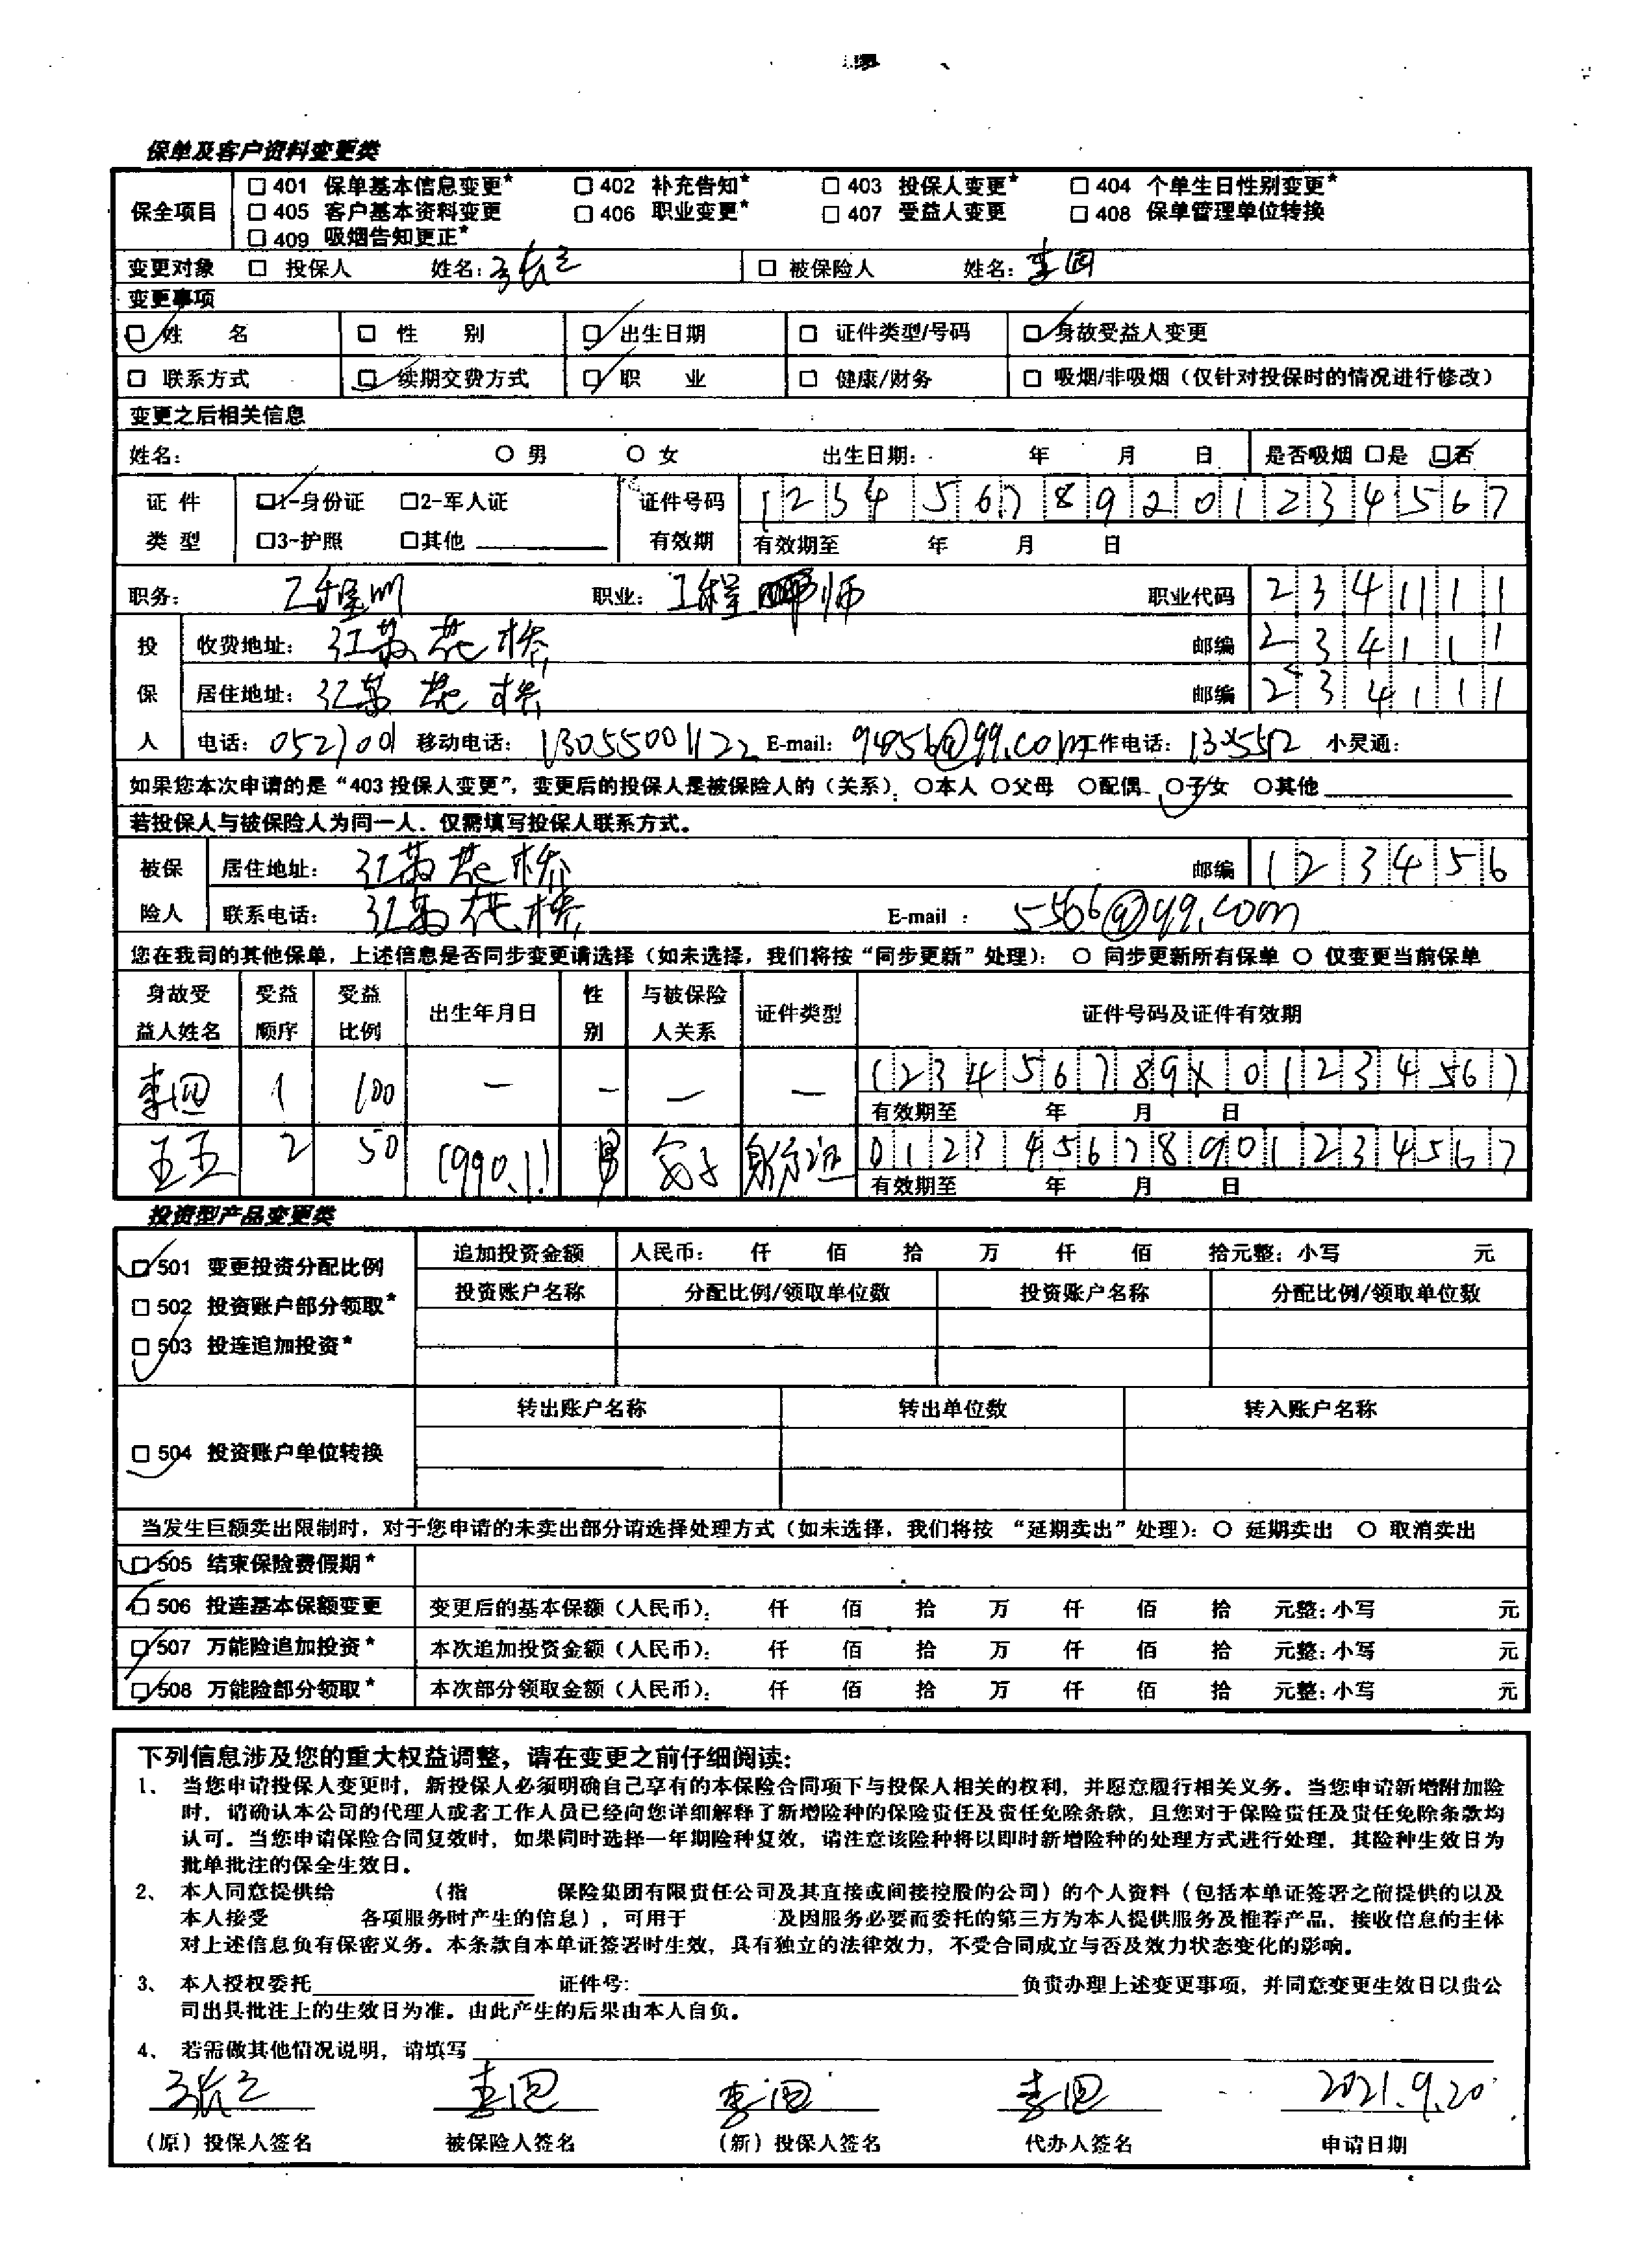 保单及客户资料变更类
保全项目
□ 401 保单基本信息变更* □ 402 补充告知* □ 403 投保人变更* □ 404 个单生日性别变更*
□ 405 客户基本资料变更 □ 406 职业变更* □ 407 受益人变更 □ 408 保单管理单位转换
□ 409 吸烟告知更正*
变更对象 □ 投保人 姓名: □ 被保险人 姓名:
变更事项
□ 姓 名 □ 性 别 □ 出生日期 □ 证件类型/号码 □ 身故受益人变更
□ 联系方式 □ 续期交费方式 □ 职 业 □ 健康/财务 □ 吸烟/非吸烟(仅针对投保时的情况进行修改)
变更之后相关信息
姓名: ○ 男 ○ 女 出生日期: 年 月 日 是否吸烟 □是 □否
证件类型 □1-身份证 □2-军人证 证件号码
□3-护照 □其他 有效期 有效期至 年 月 日
职务: 职业: 工程师 职业代码 234111
投保人 收费地址: 江苏花桥 邮编 234111
居住地址: 江苏花桥 邮编 234111
电话: 移动电话: 13055001122 E-mail: 工作电话: 小灵通:
如果您本次申请的是“403 投保人变更”, 变更后的投保人是被保险人的(关系): ○本人 ○父母 ○配偶 ○子女 ○其他
若投保人与被保险人为同一人, 仅需填写投保人联系方式。
被保险人 居住地址: 江苏花桥 邮编 123456
联系电话: 江苏花桥 E-mail: 5566@qq.com
您在我司的其他保单, 上述信息是否同步变更请选择(如未选择, 我们将按“同步更新”处理): ○ 同步更新所有保单 ○ 仅变更当前保单
身故受益人姓名 受益顺序 受益比例 出生年月日 性别 与被保险人关系 证件类型 证件号码及证件有效期
1 100 — — — — 123456789X01234567
有效期至 年 月 日
王五 2 50 1990.1.1 男 身份证 012345678901234567
有效期至 年 月 日
投资型产品变更类
□ 501 变更投资分配比例 追加投资金额 人民币: 仟 佰 拾 万 仟 佰 拾元整: 小写 元
□ 502 投资账户部分领取* 投资账户名称 分配比例/领取单位数 投资账户名称 分配比例/领取单位数
□ 503 投连追加投资*
□ 504 投资账户单位转换 转出账户名称 转出单位数 转入账户名称
当发生巨额卖出限制时, 对于您申请的未卖出部分请选择处理方式(如未选择, 我们将按 “延期卖出”处理): ○ 延期卖出 ○ 取消卖出
□ 505 结束保险费假期*
□ 506 投连基本保额变更 变更后的基本保额(人民币): 仟 佰 拾 万 仟 佰 拾 元整: 小写 元
□ 507 万能险追加投资* 本次追加投资金额(人民币): 仟 佰 拾 万 仟 佰 拾 元整: 小写 元
□ 508 万能险部分领取* 本次部分领取金额(人民币): 仟 佰 拾 万 仟 佰 拾 元整: 小写 元
下列信息涉及您的重大权益调整, 请在变更之前仔细阅读:
1、 当您申请投保人变更时, 新投保人必须明确自己享有的本保险合同项下与投保人相关的权利, 并愿意履行相关义务。当您申请新增附加险
时, 请确认本公司的代理人或者工作人员已经向您详细解释了新增险种的保险责任及责任免除条款, 且您对于保险责任及责任免除条款均
认可。当您申请保险合同复效时, 如果同时选择一年期险种复效, 请注意该险种将以即时新增险种的处理方式进行处理, 其险种生效日为
批单批注的保全生效日。
2、 本人同意提供给 (指 保险集团有限责任公司及其直接或间接控股的公司)的个人资料(包括本单证签署之前提供的以及
本人接受 各项服务时产生的信息), 可用于 及因服务必要而委托的第三方为本人提供服务及推荐产品, 接收信息的主体
对上述信息负有保密义务。本条款自本单证签署时生效, 具有独立的法律效力, 不受合同成立与否及效力状态变化的影响。
3、 本人授权委托 证件号: 负责办理上述变更事项, 并同意变更生效日以贵公
司出具批注上的生效日为准。由此产生的后果由本人自负。
4、 若需做其他情况说明, 请填写
2021.9.20
(原)投保人签名 被保险人签名 (新)投保人签名 代办人签名 申请日期